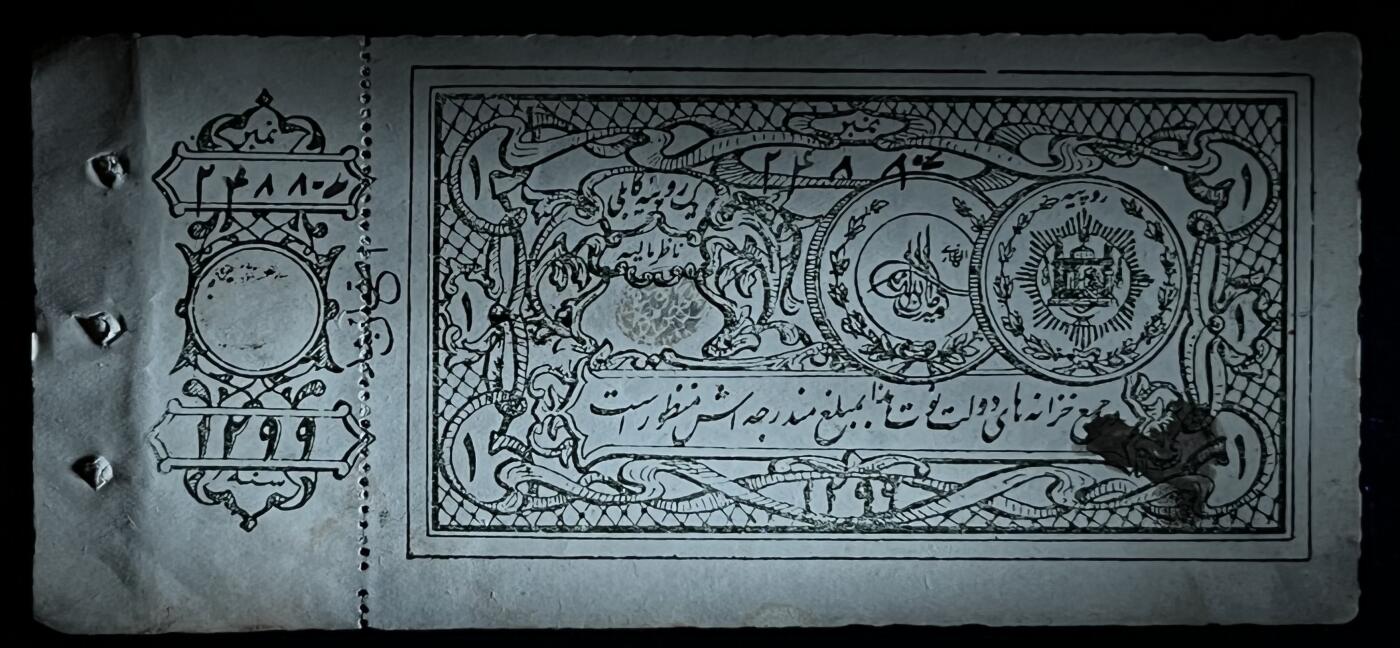 نمبر
۲۴۸۸۰ط
۱۲۹۹
سنه
نمبر
۲۴۸۸۰ط
۱
۱
یک روپیه کابلی
ناظر مالیه
روپیه
۱
۱
جمع خزانه های دولت نوت هذا بمبلغ مندرجه اش منظور است
۱
۱
۱۲۹۹